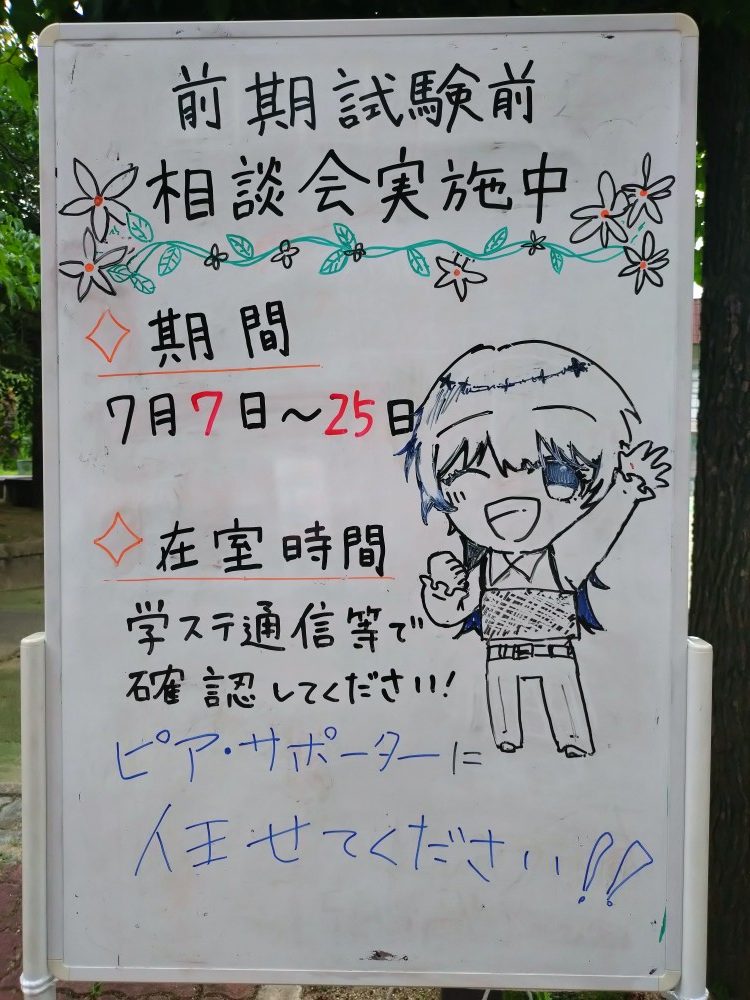 前期試験前
相談会実施中
期間
7月7日～25日
在室時間
学ステ通信等で
確認してください!
ピア・サポーターに
任せてください!!